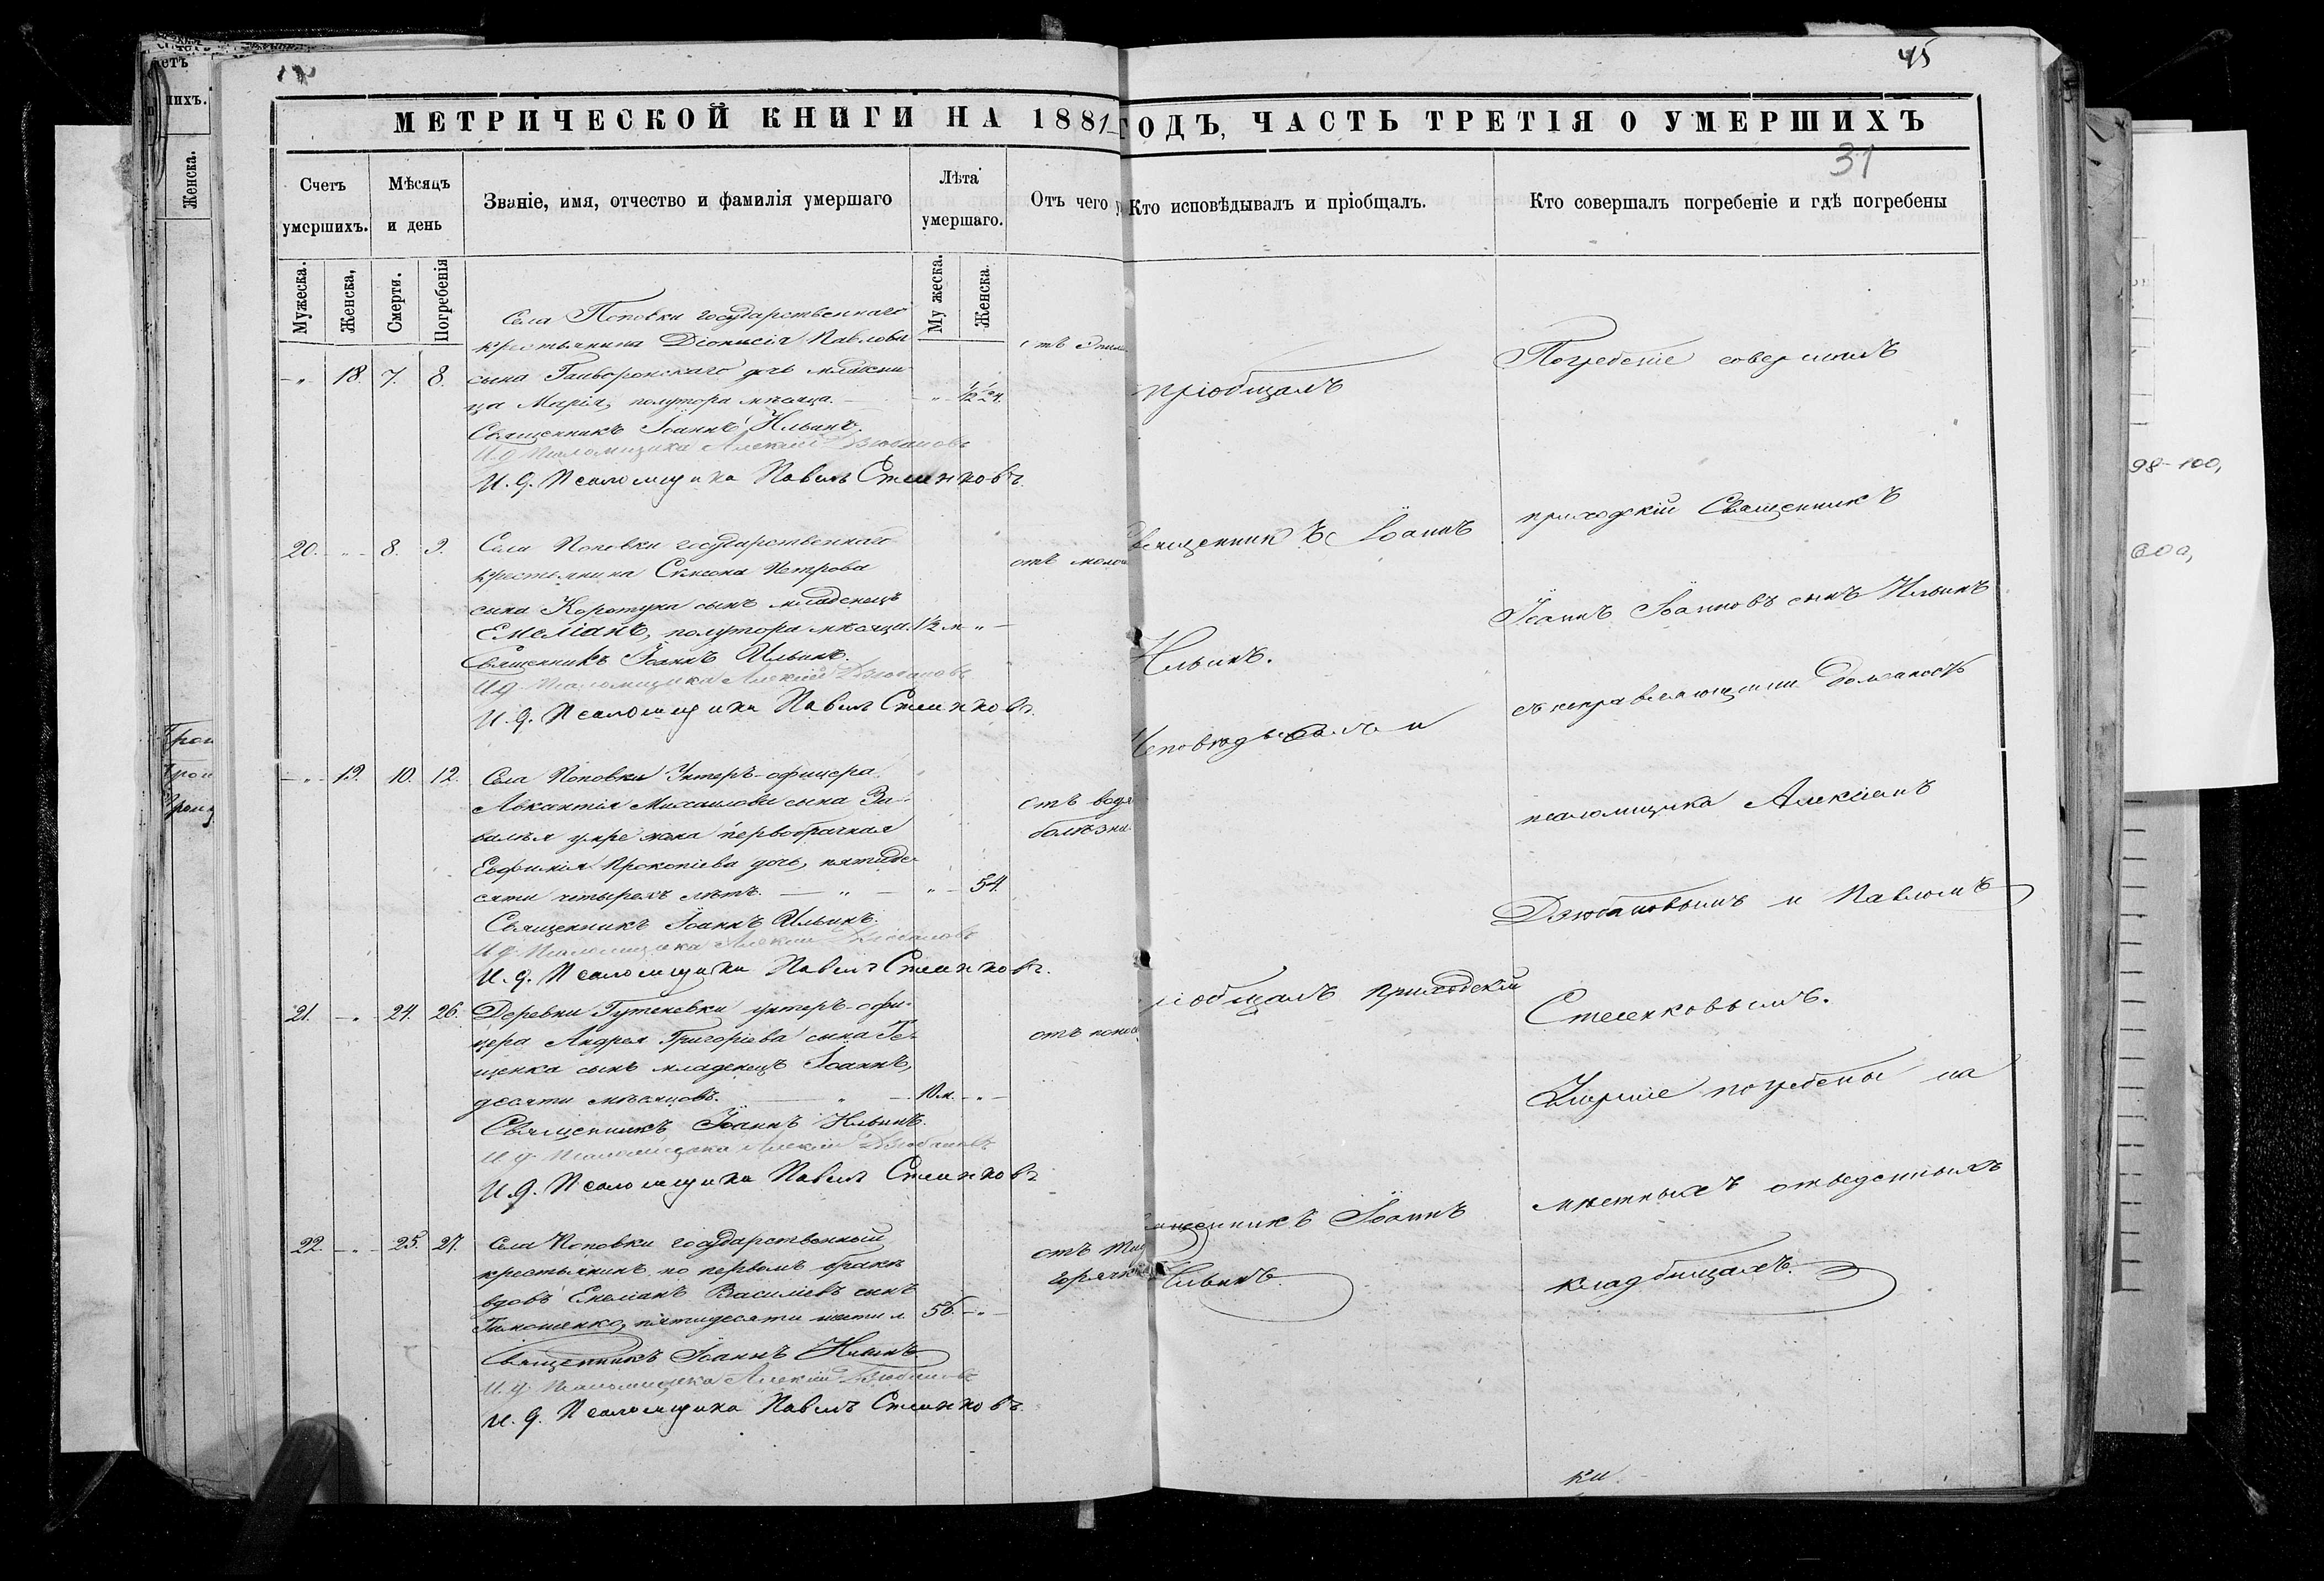 45
МЕТРИЧЕСКОЙ КНИГИ НА 1881 ГОДЪ, ЧАСТЬ ТРЕТІЯ О УМЕРШИХЪ
31
Счетъ умершихъ.
Мѣсяцъ и день
Званіе, имя, отчество и фамилія умершаго
Лѣта умершаго.
Отъ чего
Кто исповѣдывалъ и пріобщалъ.
Кто совершалъ погребеніе и гдѣ погребены
Мужеска.
Женска,
Смерти.
Погребенія
Му жеска.
Женска.
Села Поповки государственнаго
крестьянина Діонисія Павлова
-„- 18. 7. 8. сына дочь младени
ца Марія, полутора мѣсяца.
Священникъ Іоаннъ Ильинъ.
И.д. Псаломщика Алексій Дзюбановъ
И. д. Псаломщика Павелъ Стеенковъ.
20. -„- 8. 9. Села Поповки государственнаго
отъ
крестьянина Симеона Петрова
сына Коротуна сынъ младенецъ
Емеліанъ, полутора мѣсяца. 1½ м „
Священникъ Іоаннъ Ильинъ.
И.д. Псаломщика Алексій Дзюбановъ
И. д. Псаломщика Павелъ Стеенковъ.
-„- 19. 10. 12. Села Поповки Унтеръ-офицера
Авксентія Михаилова сына
жена первобрачная
отъ
болѣзни.
Евфимія Прокопіева дочь, пятиде-
сяти четырехъ лѣтъ. — „ — 54.
Священникъ Іоаннъ Ильинъ.
И.д. Псаломщика Алексій Дзюбановъ
И. д. Псаломщика Павелъ Стеенковъ.
21. -„- 24. 26. Деревни унтеръ-офи-
цера Андрея Григоріева сына Ге-
отъ
щенка сынъ младенецъ Іоаннъ,
десяти мѣсяцовъ. — „ — 10 м. -„-
Священникъ Іоаннъ Ильинъ.
И.д. Псаломщика Алексій Дзюбановъ
И. д. Псаломщика Павелъ Стеенковъ
22. -„- 25. 27. Села Поповки государственный
отъ
крестьянинъ по первомъ бракѣ
вдовъ Емеліанъ Василіевъ сынъ
Тимошенко, пятидесяти шести л. 56. -„-
Священникъ Іоаннъ Ильинъ
И.д. Псаломщика Алексій Дзюбановъ
И. д. Псаломщика Павелъ Стеенковъ.
пріобщалъ
Священникъ Іоаннъ
Ильинъ.
Исповѣдывалъ и
пріобщалъ приходскій
Священникъ Іоаннъ
Ильинъ.
Погребеніе совершилъ
приходскій Священникъ
Іоаннъ Іоанновъ сынъ Ильинъ
съ исправляющими должность
псаломщика Алексіемъ
Дзюбановымъ и Павломъ
Стеенковымъ.
Умершіе погребены на
мѣстныхъ отведенныхъ
кладбищахъ.
98-100,